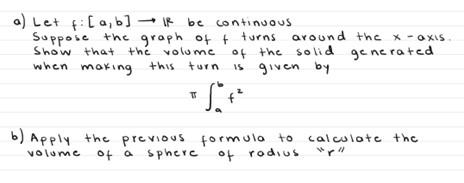 a) Let f: [a,b] → ℝ be continuous
Suppose the graph of f turns around the x-axis.
Show that the volume of the solid generated
when making this turn is given by
π ∫ₐᵇ f²
b) Apply the previous formula to calculate the
volume of a sphere of radius "r"